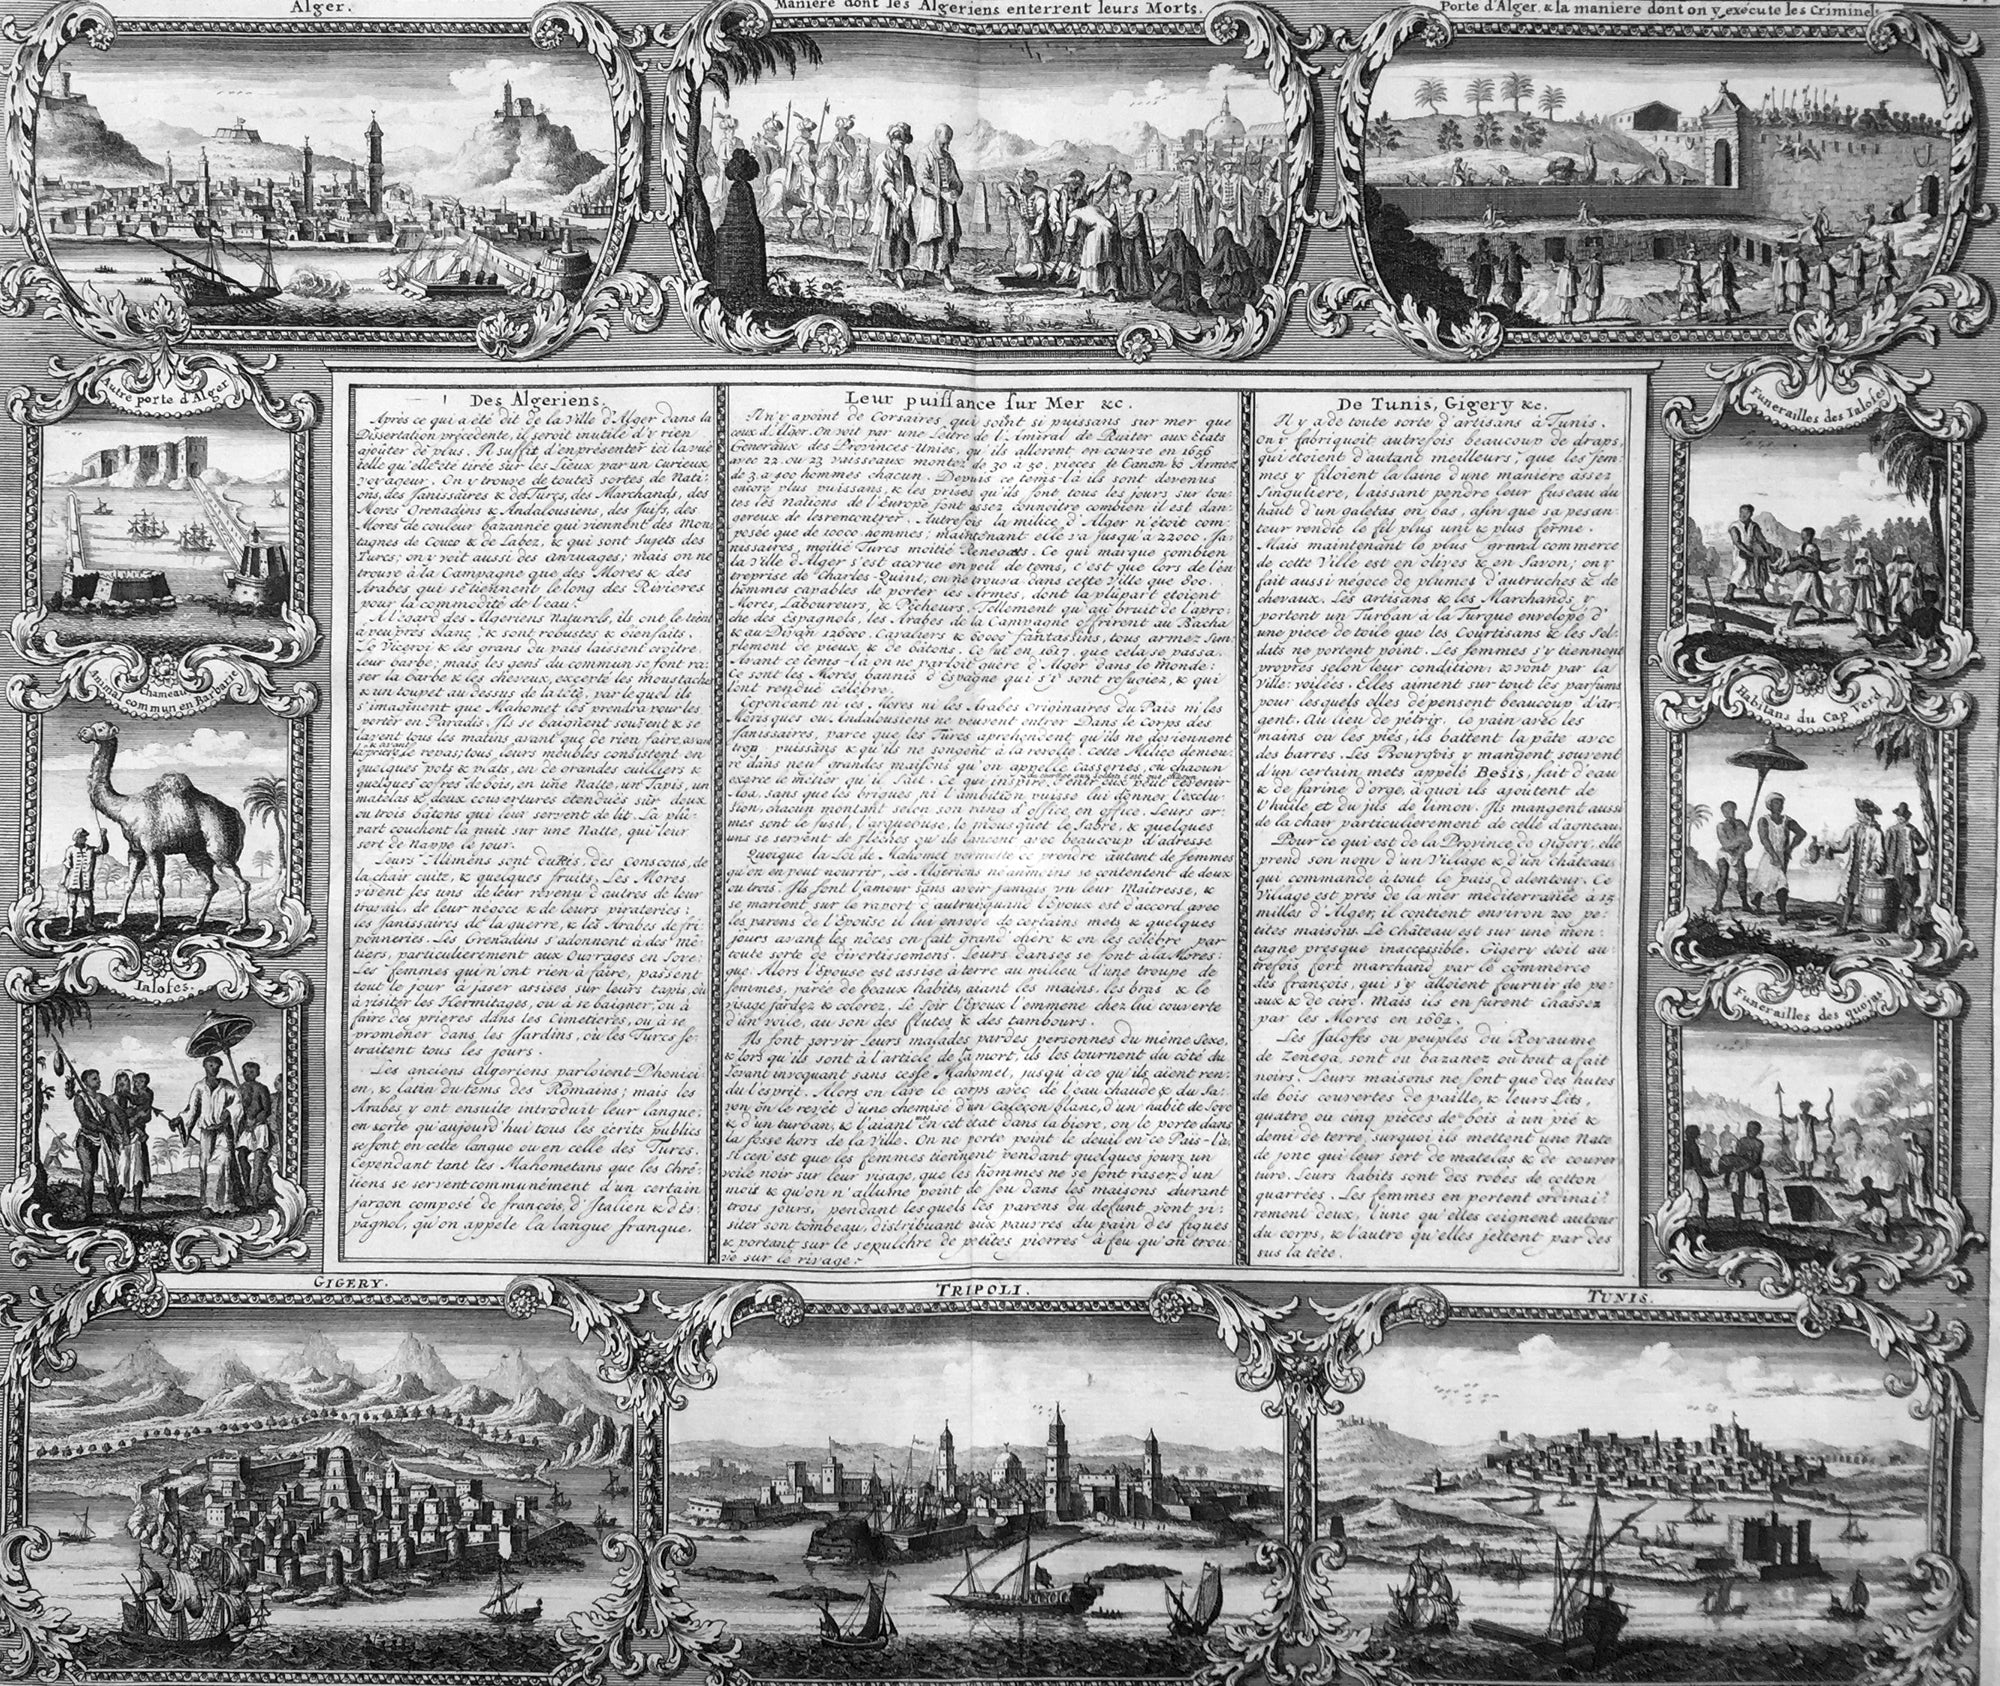 Alger.
Maniere dont les Algeriens enterrent leurs Morts.
Porte d'Alger. & la maniere dont on y exécute les Criminels
Autre porte d'Alger
Chameau
Animal commun en Barbarie
Ialofes.
Des Algeriens.
Après ce qui a été dit de la Ville d'Alger dans la
Dissertation précedente, il seroit inutile d'y rien
ajoûter de plus. Il suffit d'en présenter ici la vuë
telle qu'elle été tirée sur les Lieux par un Curieux
voyageur. On y trouve de toutes sortes de Nati-
ons, des Janissaires & des Turcs, des Marchands, des
Mores Grenadins & Andalousiens, des Juifs, des
Mores de couleur bazannée qui viennent des Mon-
tagnes de Couco & de Labez, & qui sont sujets des
Turcs; on y voit aussi des; mais on ne
trouve à la Campagne que des Mores & des
Arabes qui se tiennent le long des Rivieres
pour la commodité de l'eau.
A l'égard des Algeriens Naturels, ils ont le teint
à peu près blanc, & sont robustes & bienfaits.
Le Viceroi & les grans du païs laissent croître
leur barbe; mais les gens du commun se font ra-
ser la barbe & les cheveux, excepté les moustaches
& un toupet au dessus de la tête, par lequel ils
s'imaginent que Mahomet les prendra pour les
porter en Paradis. Ils se baignent souvent & se
lavent tous les matins avant que de rien faire, avant
& avant
le repas; tous leurs meubles consistent en
quelques pots & plats, en de grandes cuilliers &
quelques cofres de bois, en une Natte, un Tapis, un
matelas & deux couvertures étenduës sur deux
ou trois bâtons qui leur servent de lit. La plu-
part couchent la nuit sur une Natte, qui leur
sert de Nappe le jour.
Leurs Alimens sont du Ris, des Conscous, de
la chair cuite, & quelques fruits. Les Mores
vivent les uns de leur revenu d'autres de leur
travail, de leur négoce & de leurs pirateries;
les Janissaires de la guerre, & les Arabes de fri-
ponneries. Les Grenadins s'adonnent à des mé-
tiers, particulierement aux Ouvrages en Soye:
Les femmes qui n'ont rien à faire, passent
tout le jour à jaser assises sur leurs tapis, ou
à visiter les Hermitages, ou à se baigner, ou à
faire des prieres dans les Cimetieres, ou à se
promener dans les Jardins, où les Turcs se
traitent tous les jours.
Les anciens algeriens parloient Phenici-
en, & latin du tems des Romains; mais les
Arabes y ont ensuite introduit leur langue;
en sorte qu'aujourd'hui tous les écrits publics
se font en cette langue ou en celle des Turcs.
Cependant tant les Mahometans que les Chré-
tiens se servent communément d'un certain
jargon composé de françois d'Italien & d'Es-
pagnol, qu'on appele la langue franque.
Leur puissance sur Mer &c.
Il n'y a point de Corsaires, qui soint si puissans sur mer que
ceux d'Alger. On voit par une Lettre de l'Amiral de Ruiter aux Etats
Generaux des Provinces-Unies, qu'ils allerent en course en 1656
avec 22. ou 23 vaisseaux montez de 30 à 50. pieces de Canon & Armez
de 3. à 400 hommes chacun. Depuis ce tems-là ils sont devenus
encore plus puissans, & les prises qu'ils font tous les jours sur tou-
tes les Nations de l'Europe font assez connoître combien il est dan-
gereux de les rencontrer. Autrefois la milice d'Alger n'étoit com-
posée que de 10000 hommes; maintenant elle va jusqu'à 22000. Ja-
nissaires, moitié Turcs moitié Renegats. Ce qui marque combien
la Ville d'Alger s'est accrue en peu de tems, c'est que lors de l'en-
treprise de Charles-Quint, on ne trouva dans cette Ville que 800.
hommes capables de porter les Armes, dont la plûpart étoient
Mores, Laboureurs, & Pêcheurs. Tellement qu'au bruit de l'apro-
che des Espagnols, les Arabes de la Campagne offrirent au Bacha
& au Divan 126000. Cavaliers & 60000 fantassins, tous armez sim-
plement de pieux, & de bâtons. Ce fut en 1617. que cela se passa.
Avant ce tems-là on ne parloit guère d'Alger dans le Monde:
Ce sont les Mores bannis d'Espagne qui s'y sont refugiez, & qui
l'ont renduë célébre.
Cependant ni ces Mores ni les Arabes originaires du Païs ni les
Morisques ou Andalousiens ne peuvent entrer Dans le corps des
Janissaires, parce que les Turcs aprehendent qu'ils ne deviennent
trop puissans & qu'ils ne songent à la revolte. Cette Milice demeu-
re dans neuf grandes maisons qu'on appelle Casseries, où chacun
exerce le métier qu'il sait. Ce qui inspire
Aga, sans que les brigues ni l'ambition puisse lui donner l'exclu-
sion, chacun montant selon son rang d'office en office. Leurs ar-
mes sont le fusil, l'arquebuse, le mousquet le sabre, & quelques
uns se servent de flêches qu'ils lancent avec beaucoup d'adresse
Quoique la Loi de Mahomet permette de prendre autant de femmes
qu'on en peut nourrir, les Algériens néanmoins se contentent de deux
ou trois. Ils font l'amour sans avoir jamais vu leur Maîtresse, &
se marient sur le raport d'autrui; quand l'époux est d'accord avec
les parens de l'Epouse il lui envoye de certains mets & quelques
jours avant les nôces on fait grand' chère & on les célébre par
toute sorte de divertissemens. Leurs danses se font à la Mores-
que. Alors l'Epouse est assise à terre au milieu d'une troupe de
femmes, parée de beaux habits, aiant les mains, les bras & le
visage fardez & colorez. Le soir l'époux l'emmene chez lui couverte
d'un voile, au son des flutes & des tambours.
Ils font servir Leurs malades par des personnes du même Sexe,
& lors qu'ils sont à l'article de la mort, ils les tournent du côté du
Levant invoquant sans cesse Mahomet, jusqu'à ce qu'ils aient ren-
du l'esprit. Alors on lave le corps avec de l'eau chaude & du Sa-
von on le revêt d'une chemise d'un Caleçon blanc, d'un habit de Soye
& d'un turban, & l'aiant mis en cet état dans la biere, on le porte dans
la fosse hors de la Ville. On ne porte point le deuil en ce Païs-là.
Il c'en est que les femmes tiennent pendant quelques jours un
voile noir sur leur visage, que les hommes ne se font raser d'un
mois & qu'on n'allume point de feu dans les maisons durant
trois jours, pendant lesquels les parens du defunt vont vi-
siter son tombeau, distribuant aux pauvres du pain des figues
& portant sur le sepulchre de petites pierres à feu qu'on trou-
ve sur le rivage.
De Tunis, Gigery &c.
Il y a de toute sorte d'artisans à Tunis.
On y fabriquoit autrefois beaucoup de draps,
qui étoient d'autant meilleurs, que les fem-
mes y filoient la laine d'une manière assez
singuliere, laissant pendre leur fuseau du
haut d'un galetas en bas, afin que sa pesan-
teur rendît le fil plus uni & plus ferme.
Mais maintenant le plus grand commerce
de cette Ville est en olives & en Savon; on y
fait aussi négoce de plumes d'autruches & de
chevaux. Les artisans & les Marchands, y
portent un Turban à la Turque envelopé d'
une piece de toile que les Courtisans & les Sol-
dats ne portent point. Les femmes s'y tiennent
propres selon leur condition; & vont par la
Ville voilées. Elles aiment sur tout les parfums
pour lesquels elles dépensent beaucoup d'ar-
gent. Au lieu de pétrir le pain avec les
mains ou les piés, ils battent la pâte avec
des barres. Les Bourgeois y mangent souvent
d'un certain mets appelé Besis, fait d'eau
& de farine d'orge, à quoi ils ajoûtent de
l'huile et du jus de limon. Ils mangent aussi
de la chair particulierement de celle d'agneau.
Pour ce qui est de la Province de Gigery, elle
prend son nom d'un Village & d'un château
qui commande à tout le païs d'alentour. Ce
Village est prés de la mer méditerranée à 15
milles d'Alger, il contient environ 200 pe-
tites maisons. Le Château est sur une mon-
tagne presque inaccessible. Gigery étoit au-
trefois fort marchand par le commerce
des françois, qui s'y alloient fournir de pe-
aux & de cire. Mais ils en furent chassez
par les Mores en 1664.
Les Jalofes ou peuples du Royaume
de Zenega, sont ou bazanez ou tout a fait
noirs. Leurs maisons ne sont que des hutes
de bois couvertes de paille, & leurs Lits,
quatre ou cinq pieces de bois à un pié &
demi de terre, surquoi ils mettent une Nate
de jonc qui leur sert de matelas & de couver-
ture. Leurs habits sont des robes de cotton
quarrées. Les femmes en portent ordinai-
rement deux, l'une qu'elles ceignent autour
du corps, & l'autre qu'elles jettent par des-
sus la tête.
Funerailles des Ialofes
Habitans du Cap Verd
Funerailles des quojas
GIGERY.
TRIPOLI.
TUNIS.